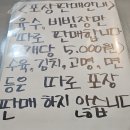 <포장판매안내>
육수, 비빔장만
따로 판매합니다
1개당 5.000원
※육수, 김치, 고명, 면
등은 따로 포장
판매 하지 않습니다